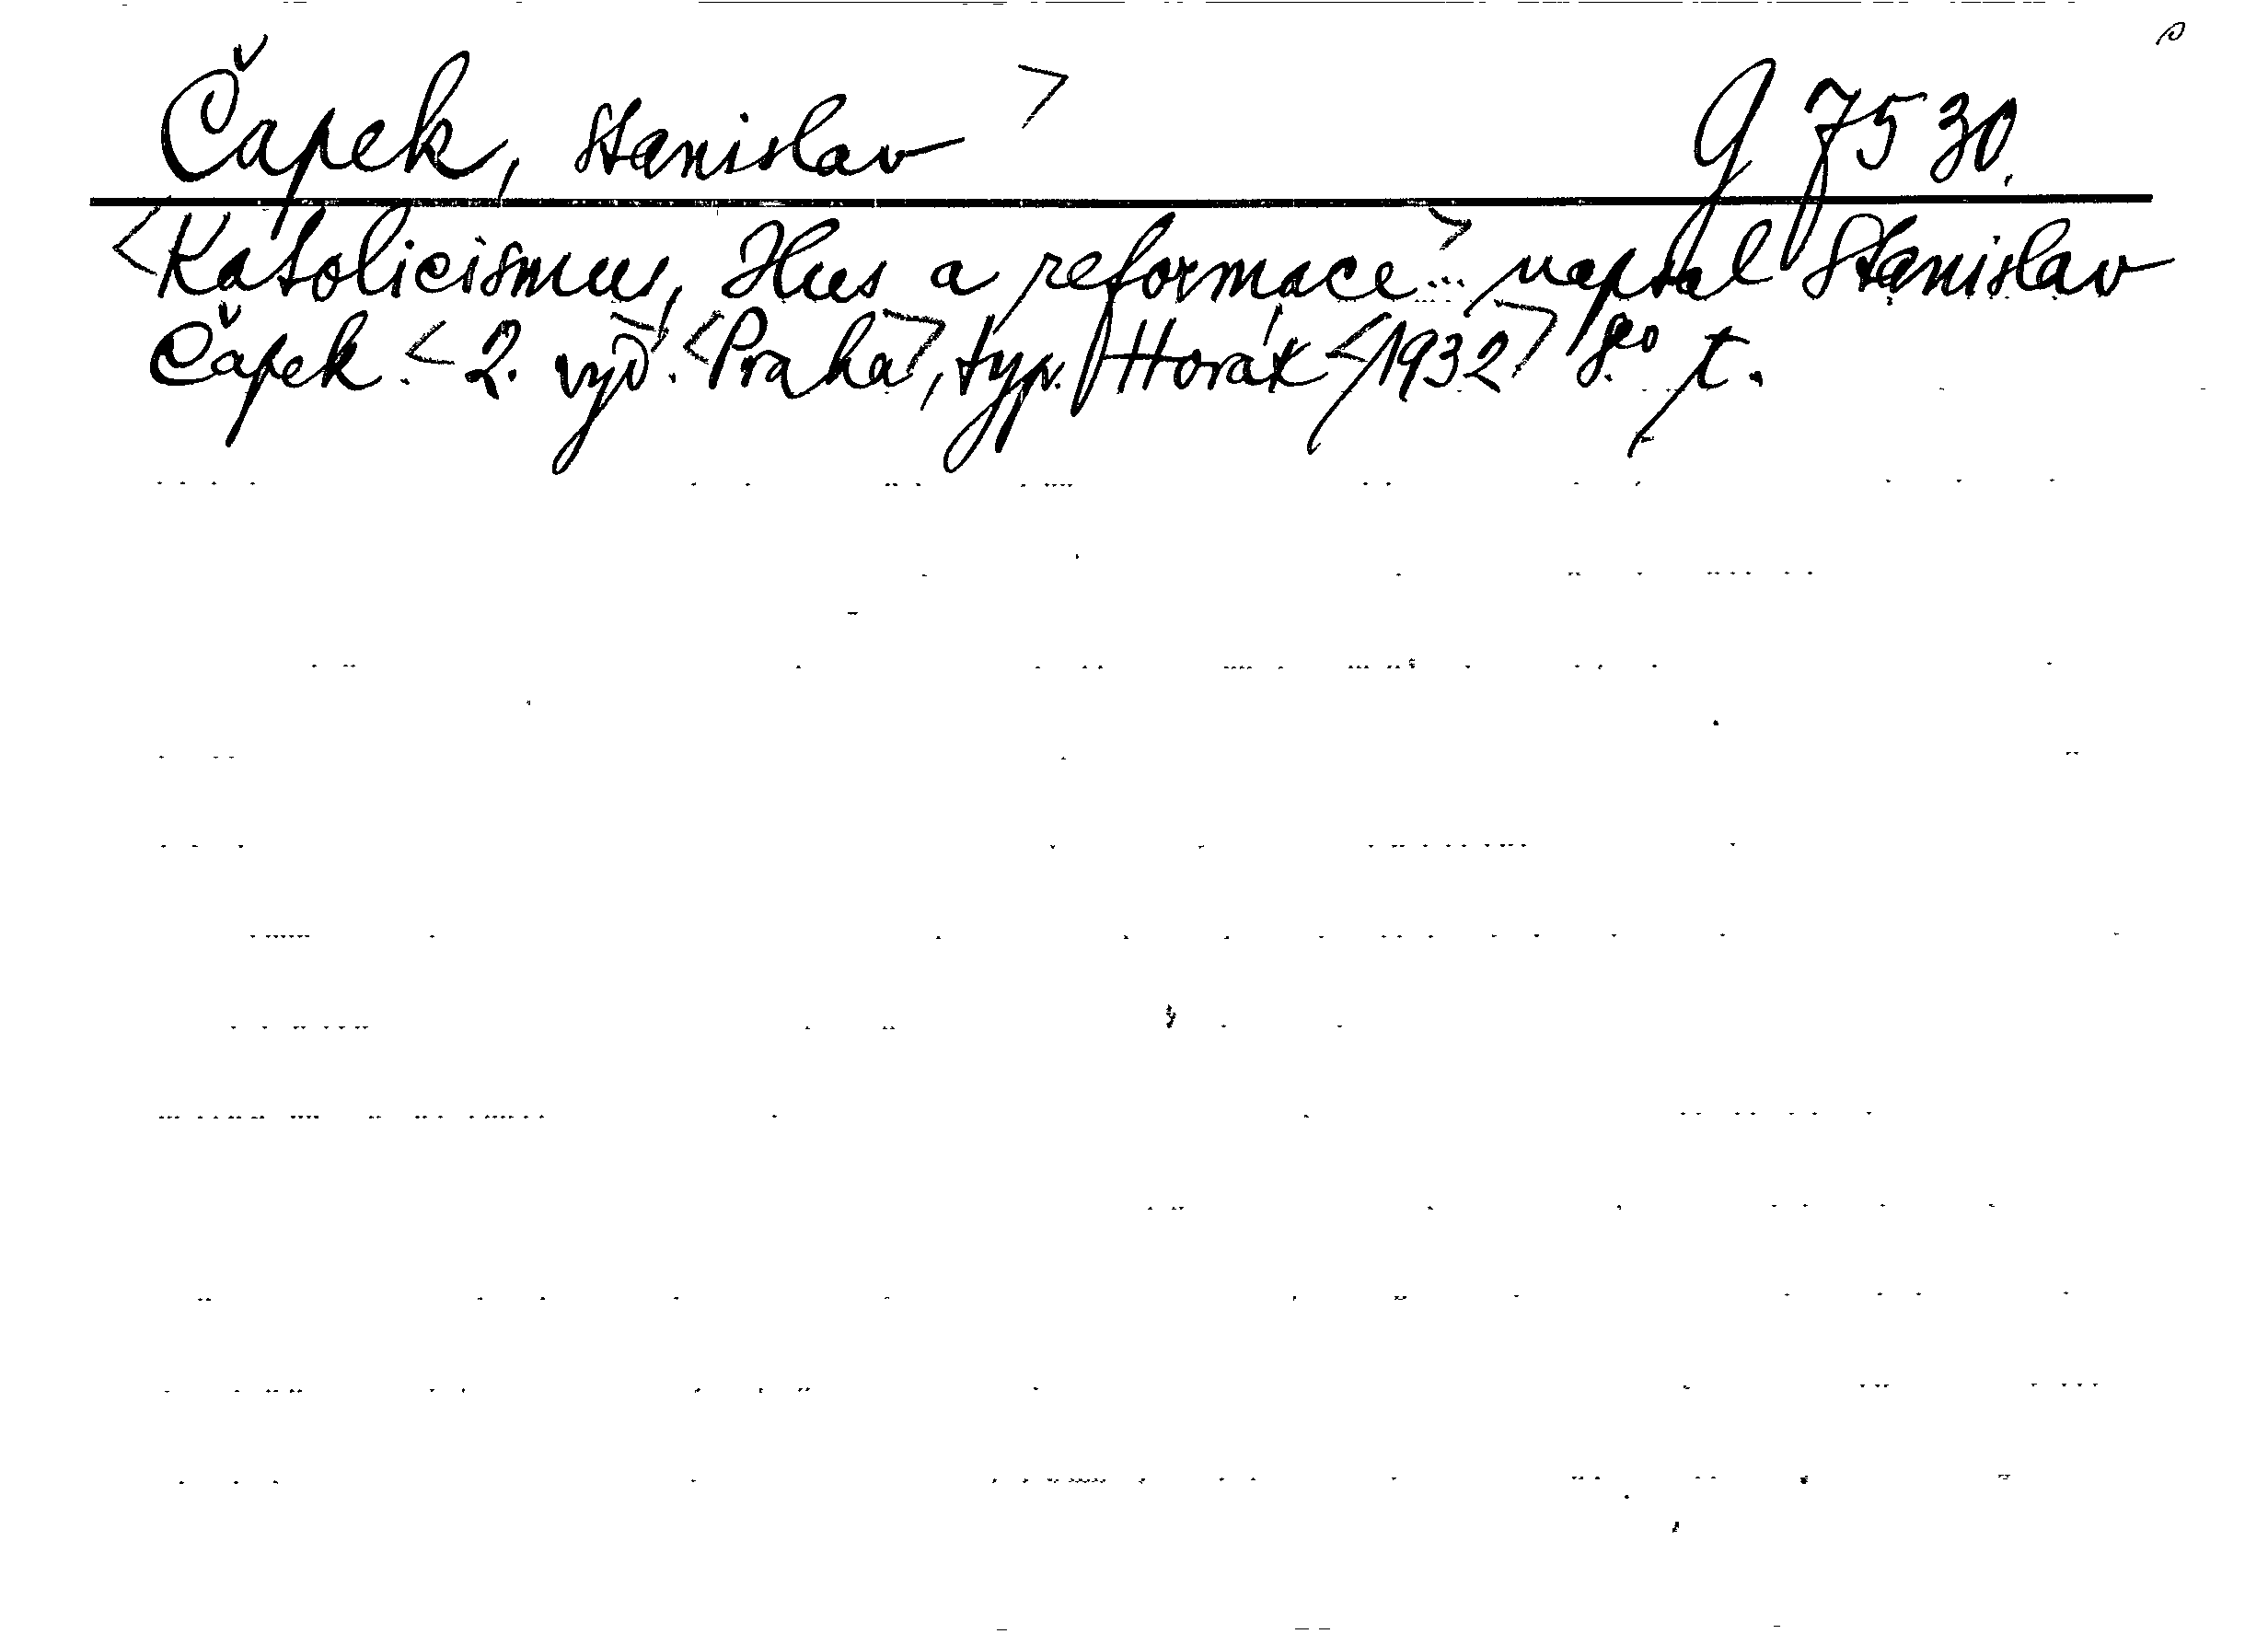 Čapek, Stanislav > G 7530.
<Katolicismus, Hus a reformace...> napsal Stanislav
Čapek. <2. vyd.> <Praha>, typ. Horák <1932> 8° t.